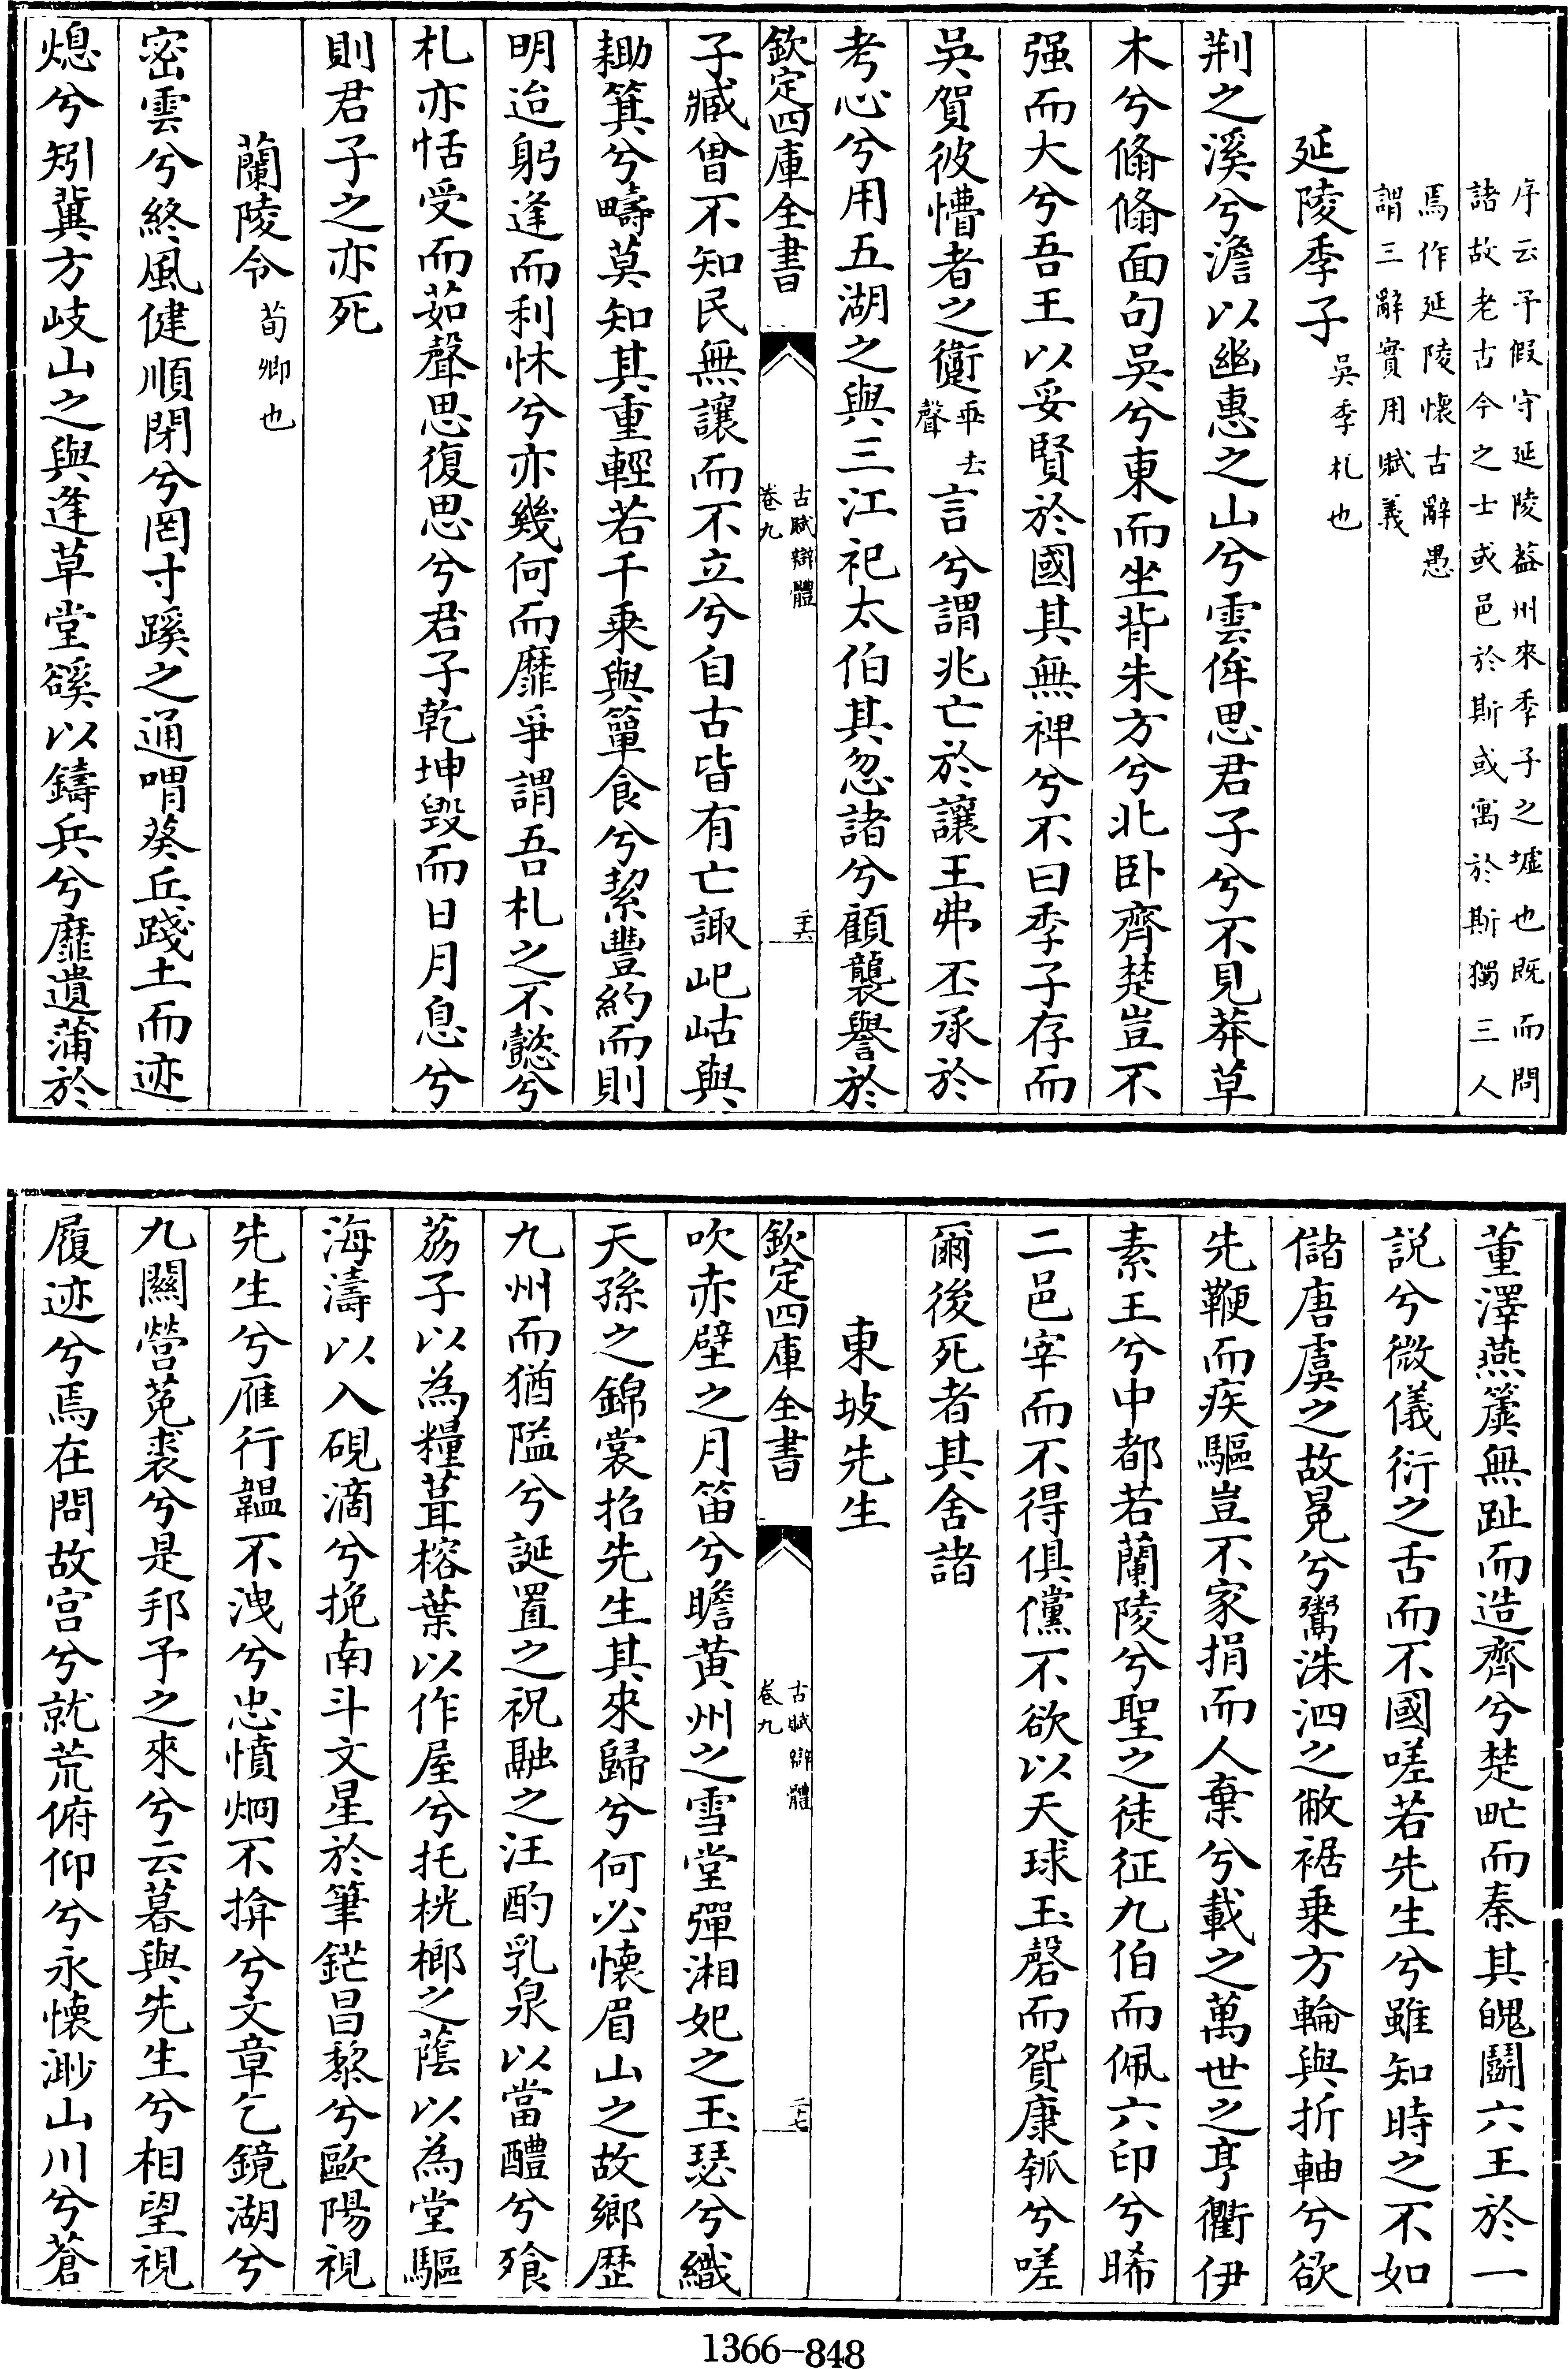 序云予假守延陵蓋州來季子之墟也既而問
諸故老古今之士或邑於斯或寓於斯獨三人
焉作延陵懷古辭愚
謂三辭實用賦義
延陵季子吳季札也
荆之溪兮澹以幽惠之山兮雲侔思君子兮不見莽草
木兮翛翛面句吳兮東而坐背朱方兮北卧齊楚豈不
强而大兮吾王以妥賢於國其無裨兮不曰季子存而
吳賀彼懵者之衛平去聲言兮謂兆亡於讓王弗丕承於
考心兮用五湖之與三江祀太伯其忽諸兮顧襲譽於
欽定四庫全書
古賦辯體
卷九
二十六
子臧曾不知民無讓而不立兮自古皆有亡諏屺岵與
耡箕兮疇莫知其重輕若千乗與簞食兮絜豐約而則
明迨躬逢而利怵兮亦幾何而靡爭謂吾札之不懿兮
札亦恬受而茹聲思復思兮君子乾坤毁而日月息兮
則君子之亦死
蘭陵令荀卿也
密雲兮終風健順閉兮罔寸蹊之通喟葵丘踐土而迹
熄兮矧冀方岐山之與逢草堂谿以鑄兵兮靡遺蒲於
董澤燕簴無趾而造齊兮楚甿而秦其虓鬭六王於一
説兮微儀衍之舌而不國嗟若先生兮雖知時之不如
儲唐虞之故冕兮鬻洙泗之敝裾乗方輪與折軸兮欲
先鞭而疾驅豈不家捐而人棄兮載之萬世之亨衢伊
素王兮中都若蘭陵兮聖之徒征九伯而佩六印兮睎
二邑宰而不得俱儻不欲以天球玉磬而貿康瓠兮嗟
爾後死者其舍諸
東坡先生
欽定四庫全書
古賦辯體
卷九
二十七
吹赤壁之月笛兮瞻黄州之雪堂彈湘妃之玉瑟兮織
天孫之錦裳招先生其來歸兮何必懷眉山之故鄉歴
九州而猶隘兮誕置之祝融之汪酌乳泉以當醴兮飱
荔子以為糧葺榕葉以作屋兮托桄榔之蔭以為堂驅
海濤以入硯滴兮挽南斗文星於筆鋩昌黎兮歐陽視
先生兮雁行韞不洩兮忠憤烱不揜兮文章乞鏡湖兮
九關營菟裘兮是邦予之來兮云暮與先生兮相望視
履迹兮焉在問故宫兮就荒俯仰兮永懷渺山川兮蒼
1366-848